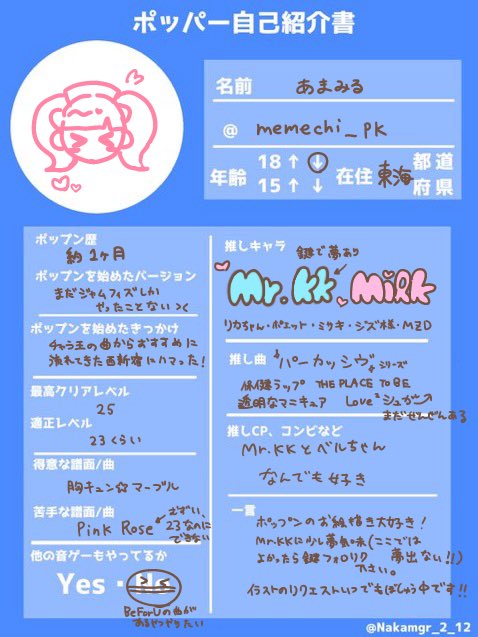 ポッパー自己紹介書
名前 あまみる
@ memechi_pk
年齢 18↑ ↓ 15↑ ↓
在住 東海 都道府県
ポップン歴
約1ヶ月
ポップンを始めたバージョン
まだジャムフィズしか
やったことない ><
ポップンを始めたきっかけ
チャラ王の曲からおすすめに
流れてきた西新宿にハマった!
最高クリアレベル
25
適正レベル
23くらい
得意な譜面/曲
胸キュン☆マーブル
苦手な譜面/曲
Pink Rose
むずい、
23なのに
できない
他の音ゲーもやってるか
Yes・No
BeForUの曲が
あるやつやりたい
推しキャラ
鍵で夢あり
Mr.KK Milk
リカちゃん・ポエット・ミサキ・ジズ様・MZD
推し曲
"パーカッシヴ"シリーズ
保健ラップ THE PLACE TO BE
透明なマニキュア Love²シュガー→
まだぜんぜんある
推しCP、コンビなど
Mr.KKとベルちゃん
なんでも好き
一言
ポップンのお絵描き大好き!
Mr.KKに少し夢気味(ここでは
夢出ない!!)
よかったら鍵フォロリク
下さい。
イラストのリクエストいつでもぼしゅう中です!!
@Nakamgr_2_12